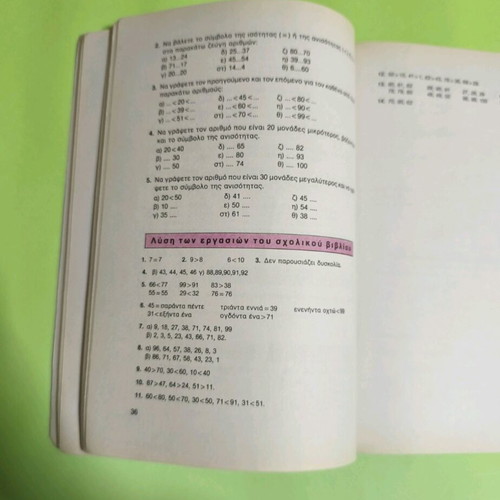 2. Να βάλετε το σύμβολο της ισότητας (=) ή της ανισότητας
στα παρακάτω ζεύγη αριθμών:
α) 13...24 δ) 25...37 ζ) 80...70
β) 71...17 ε) 45...54 η) 39...93
γ) 20...20 στ) 14...4 θ) 6....60
3. Να γράψετε τον προηγούμενο και τον επόμενο για τον καθένα από τους
παρακάτω αριθμούς:
α) ...<20<... δ) ...<45<... ζ) ...<80<...
β) ...<39<... ε) ...<60<... η) ...<90<...
γ) ...<51<... στ) ...<70<... θ) ...<99<...
4. Να γράψετε τον αριθμό που είναι 20 μονάδες μικρότερος,
και το σύμβολο της ανισότητας.
α) 20<40 δ) .... 65 ζ) .... 82
β) .... 30 ε) .... 80 η) .... 93
γ) .... 50 στ) .... 74 θ) .... 100
5. Να γράψετε τον αριθμό που είναι 30 μονάδες μεγαλύτερος και
ψετε το σύμβολο της ανισότητας.
α) 20<50 δ) 41 .... ζ) 45 ....
β) 10 .... ε) 50 .... η) 54 ....
γ) 35 .... στ) 61 .... θ) 38 ....
Λύση των εργασιών του σχολικού βιβλίου
1. 7=7 2. 9>8 6<10 3. Δεν παρουσιάζει δυσκολία.
4. β) 43, 44, 45, 46 γ) 88,89,90,91,92
5. 66<77 99>91 83>38
55=55 29<32 76=76
6. 45=σαράντα πέντε τριάντα εννιά=39 ενενήντα οχτώ<99
31<εξήντα ένα ογδόντα ένα>71
7. α) 9, 18, 27, 38, 71, 74, 81, 99
β) 2, 3, 5, 23, 43, 66, 71, 82.
8. α) 96, 64, 57, 38, 26, 8, 3
β) 86, 71, 67, 58, 43, 23, 1
9. 40>70, 30<60, 10<40
10. 67>47, 64>24, 51>11.
11. 60<80, 50<70, 30<50, 71<91, 31<51.
36